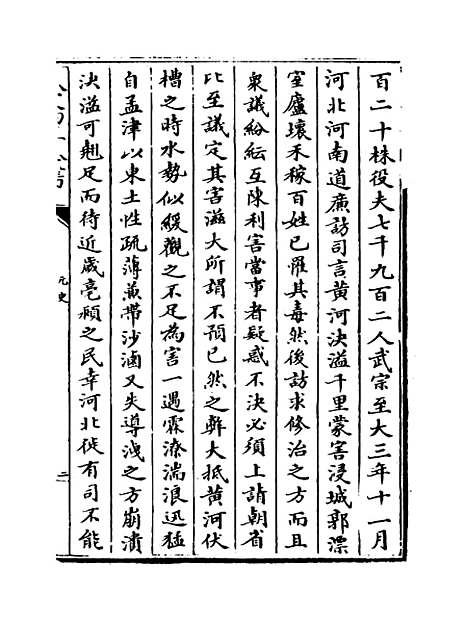 百二十株役夫七千九百二人武宗至大三年十一月
河北河南道廉訪司言黄河決溢千里蒙害浸城郭漂
室廬壞禾稼百姓已罹其毒然後訪求修治之方而且
衆議紛紜互陳利害當事者疑惑不決必須上請朝省
比至議定其害滋大所謂不預已然之弊大抵黄河伏
槽之時水勢似緩觀之不足為害一遇霖潦湍浪迅猛
自孟津以東土性疏薄兼帶沙滷又失導洩之方崩潰
決溢可翹足而待近歲亳潁之民幸河北徙有司不能
元史
二